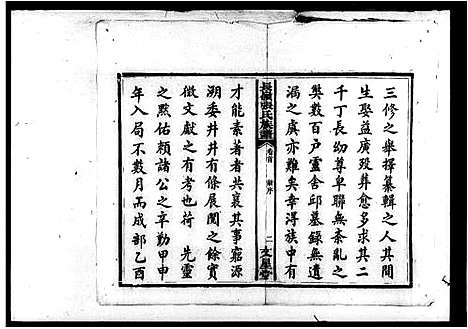 三修之舉擇纂輯之人其間
生娶益廣歿葬愈多其二
千丁長幼尊卑聯無紊亂之
獘數百戶靈舍邱墓錄無遺
漏之虞亦難矣幸得族中有
長嶺張氏族譜 卷首 新序 二 文星堂
才能素著者共襄其事窮源
溯委井井有條展閱之餘實
徵文獻之有考也荷 先靈
之黙佑賴諸公之辛勤甲申
年入局不數月而成部乙酉